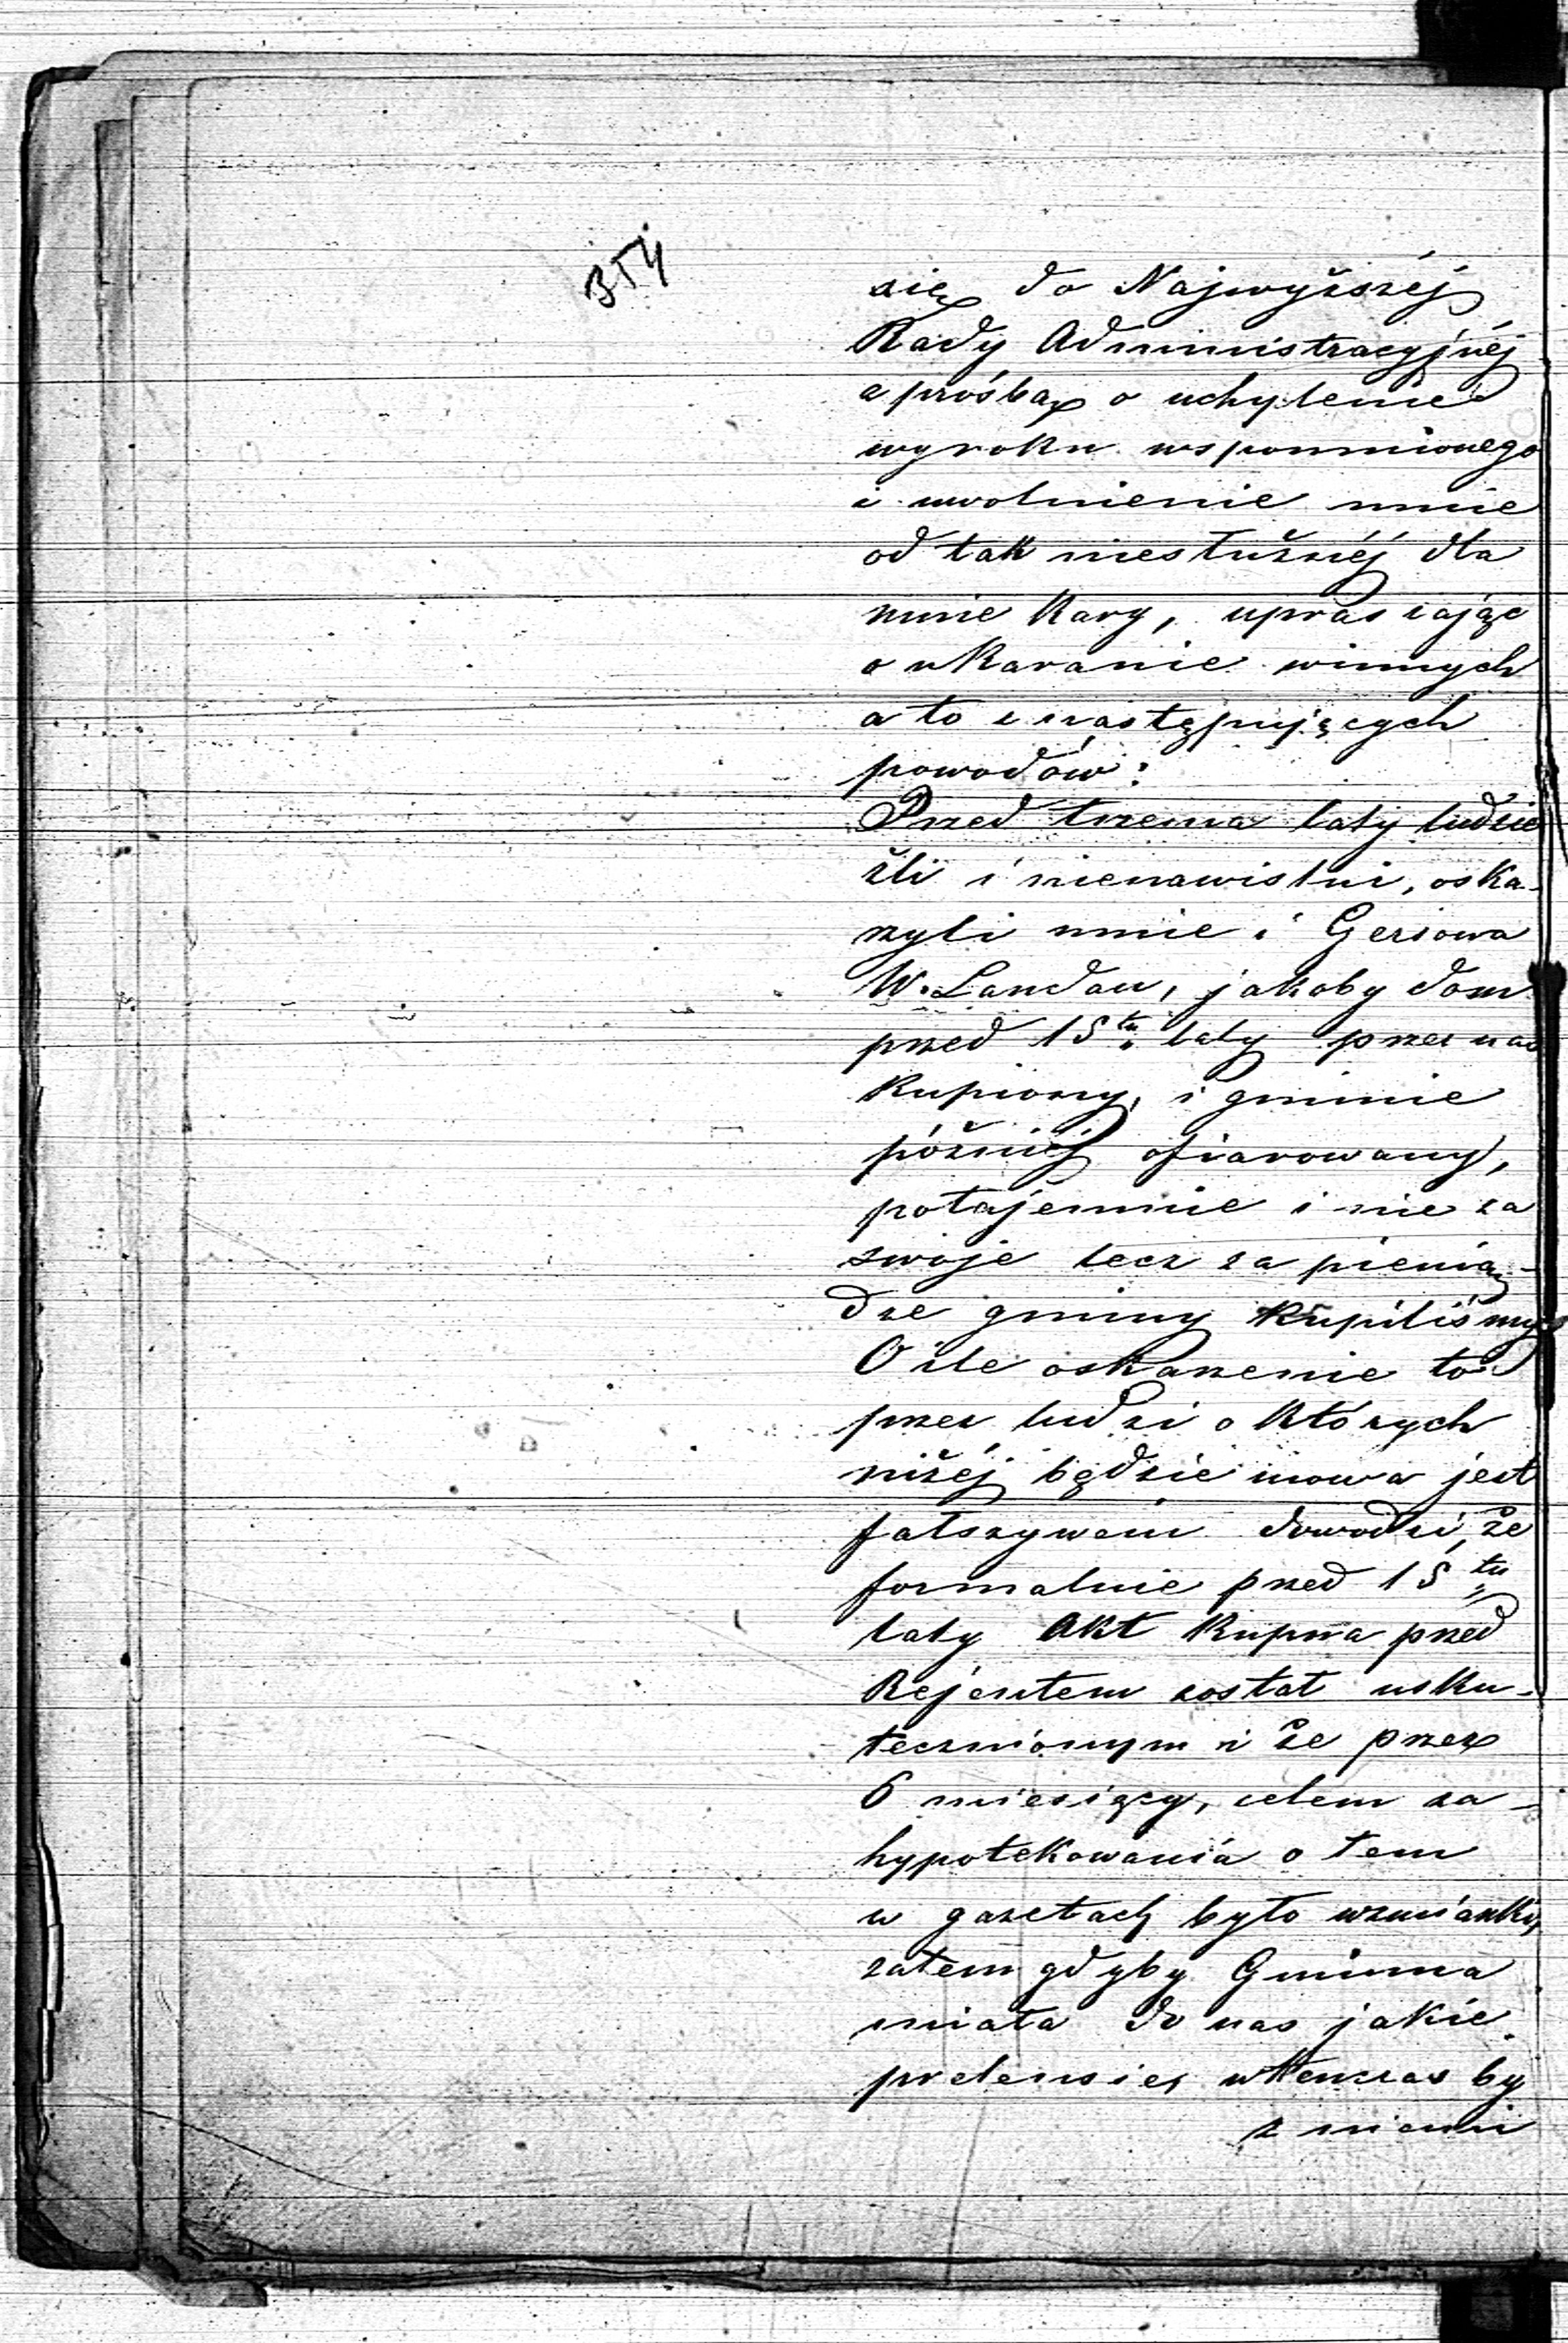 się do Najwyższéj
Rady Administracyjnéj
z prośbą o uchylenie
wyroku wspomnionego
i uwolnienie mnie
od tak niesłużnéj dla
mnie kary, upraszając
o ukaranie winnych
a to z następujących
powodów:
Przed trzema laty ludzie
źli i nienawistni, oska-
rzyli mnie i Gersona
W. Landau, jakoby dom
przed 15tu laty przez nas
kupiony, i gminie
później ofiarowany,
potajemnie i nie za
swoje lecz za pienią-
dze gminy kupiliśmy
O ile oskarzenie to
przez ludzi o których
niżéj będzie mowa jest
fałszywem dowodzi, że
formalnie przed 15tu
laty Akt kupna przed
Rejentem został usku-
tecznionym i że przez
6 miesięcy, celem za-
hypotekowania o tem
w gazetach było wzmianki,
zatem gdyby Gmina
miała do nas jakie
pretensie, wtenczas by
z niemi